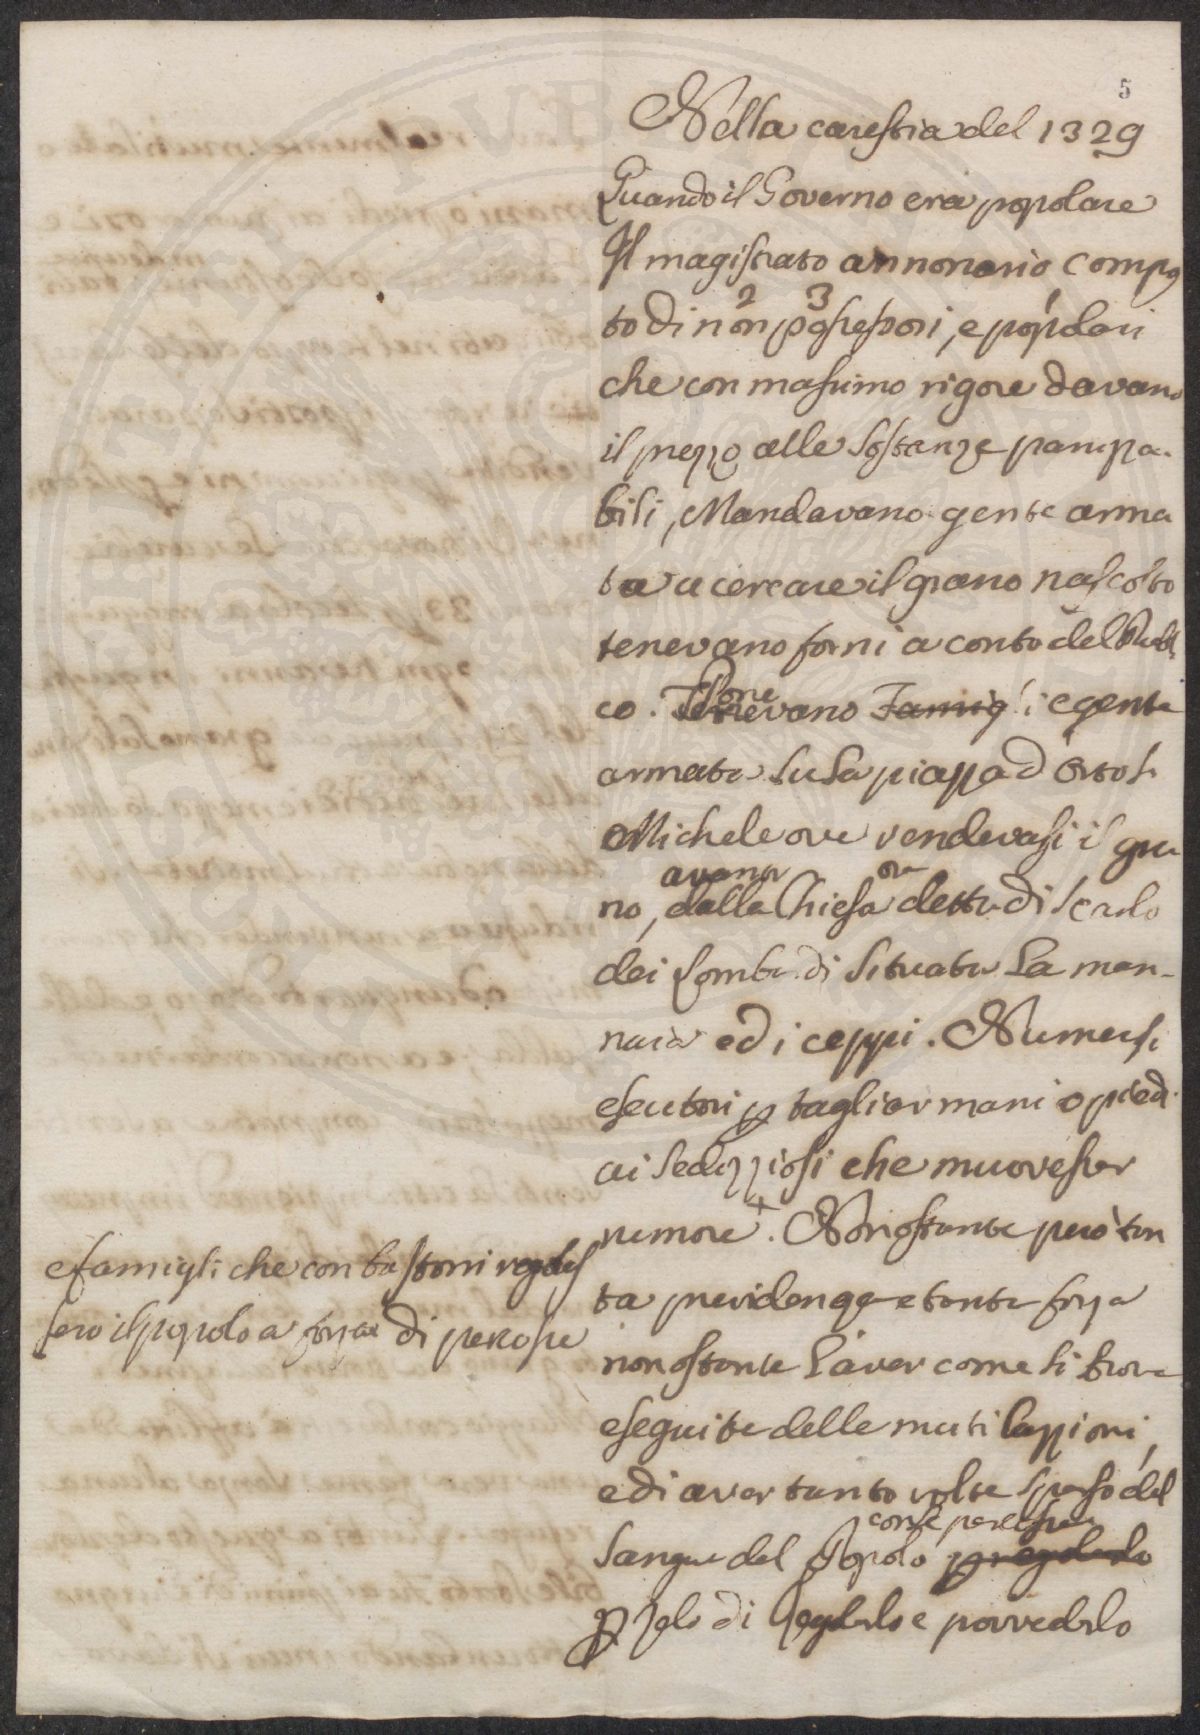 5
Nella carestia del 1329
Quando il Governo era popolare
Il magistrato annonario compos
to di non possessori, e popolari
2 3 1
che con massimo rigore davano
il prezzo alle sostanze panizza
bili, Mandavano gente arma
ta a cercare il grano nascosto
tenevano forni a conto del Publi
co. Tenevano Famigli e gente
Pone
armata su la piazza d'Orto S.
Michele ove vendevasi il gra
no, dalla Chiesa detta di S. Carlo
avanti ora
dei Lombardi situata La man-
naia ed i ceppi. Numerosi
esecutori p tagliar mani o piedi
ai sediziosi che muovesser
rumore +. Nonostante però tan
ta previdenza e tanta forza
nonostante l'aver come si trova
eseguite delle mutilazioni,
e di aver tanto volte sparso del
sangue del Popolo
con le percosse
p zelo di regolarlo e provvederlo
e famigli che con bastoni regolas
sero il popolo a forza di percosse